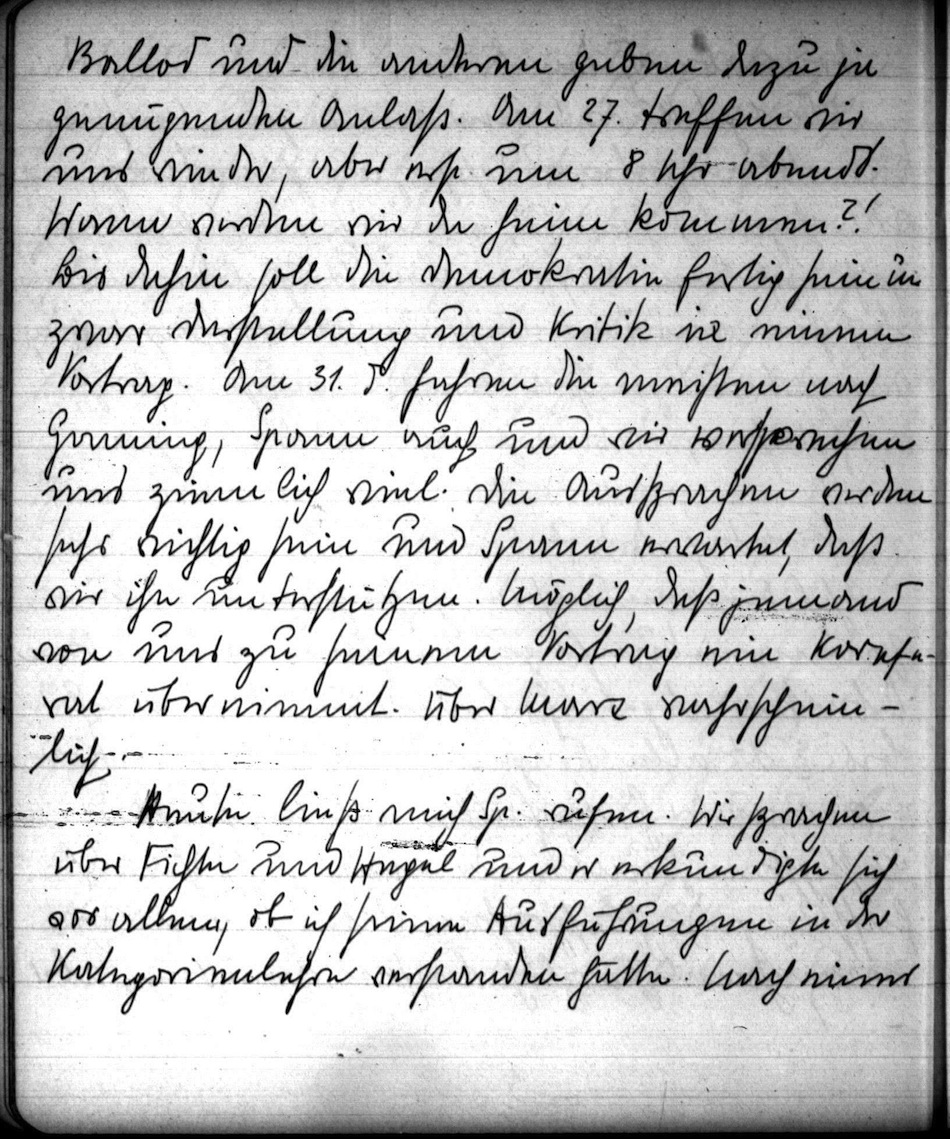 Ballod und die anderen geben dazu ja
genügenden Anlaß. Am 27. treffen wir
uns wieder, aber erst um 8 Uhr abends.
Wann werden wir da heim kommen?!
Bis dahin soll die Demokratie fertig sein u.
zwar Darstellung und Kritik in einem
Vortrag. Am 31. d. fahren die meisten nach
Gaming, Spann auch und wir versprechen
uns ziemlich viel. Die Aussprachen werden
sehr wichtig sein und Spann erwartet, daß
wir ihn unterstützen. Möglich, daß jemand
von uns zu seinem Vortrag ein Korefe-
rat übernimmt. Über Marx wahrschein-
lich.
Heute ließ mich Sp. rufen. Wir sprachen
über Fichte und Hegel und er erkundigte sich
vor allem, ob ich seine Ausführungen in der
Kategorienlehre verstanden hätte. Nach einer